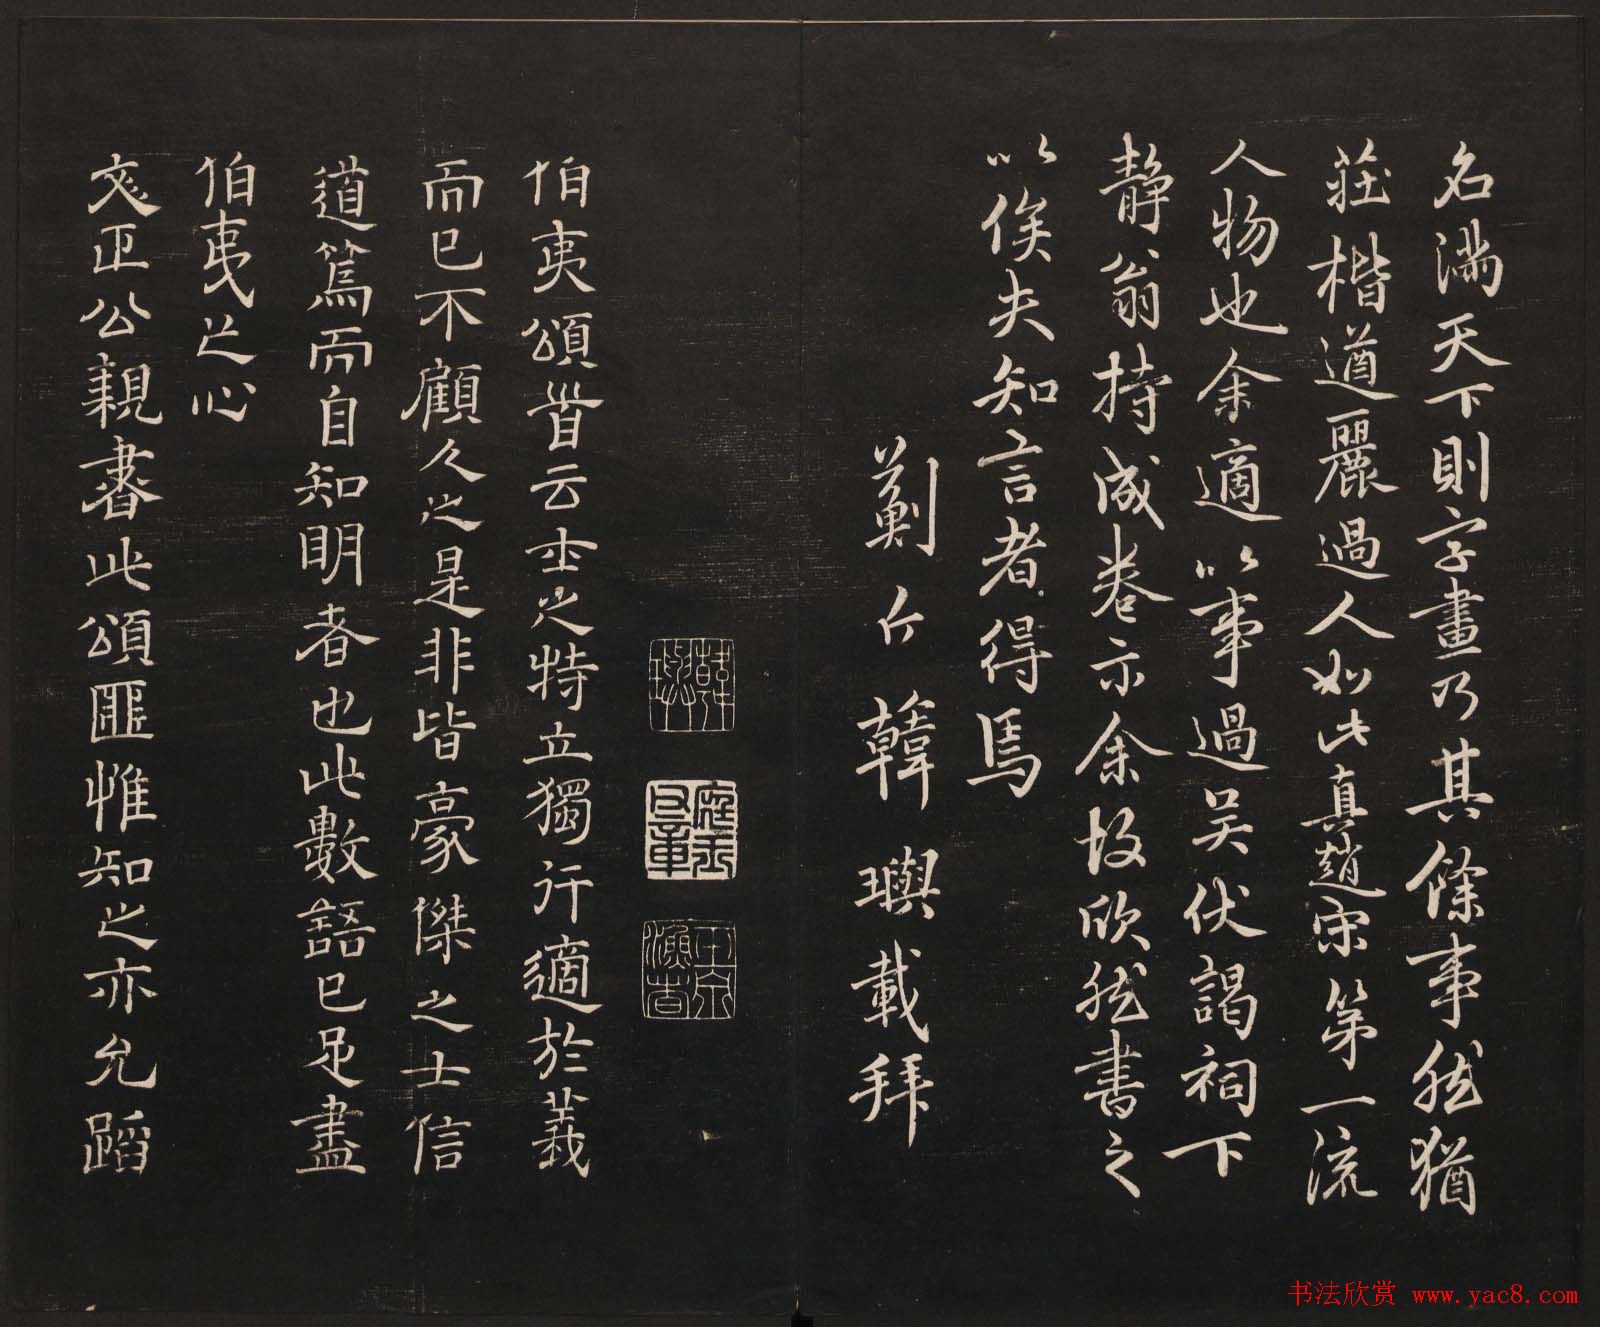 名滿天下則字畫乃其餘事然猶
莊楷遒麗過人如此真趙宋第一流
人物也余適以事過吴伏謁祠下
静翁持成卷示余故欣然書之
以俟夫知言者得焉
薊丘韓璵載拜
伯夷頌首云士之特立獨行適於義
而已不顧人之是非皆豪傑之士信
道篤而自知明者也此數語已足盡
伯夷之心
文正公親書此頌匪惟知之亦允蹈
韓璵
書法欣赏 www.yac8.com